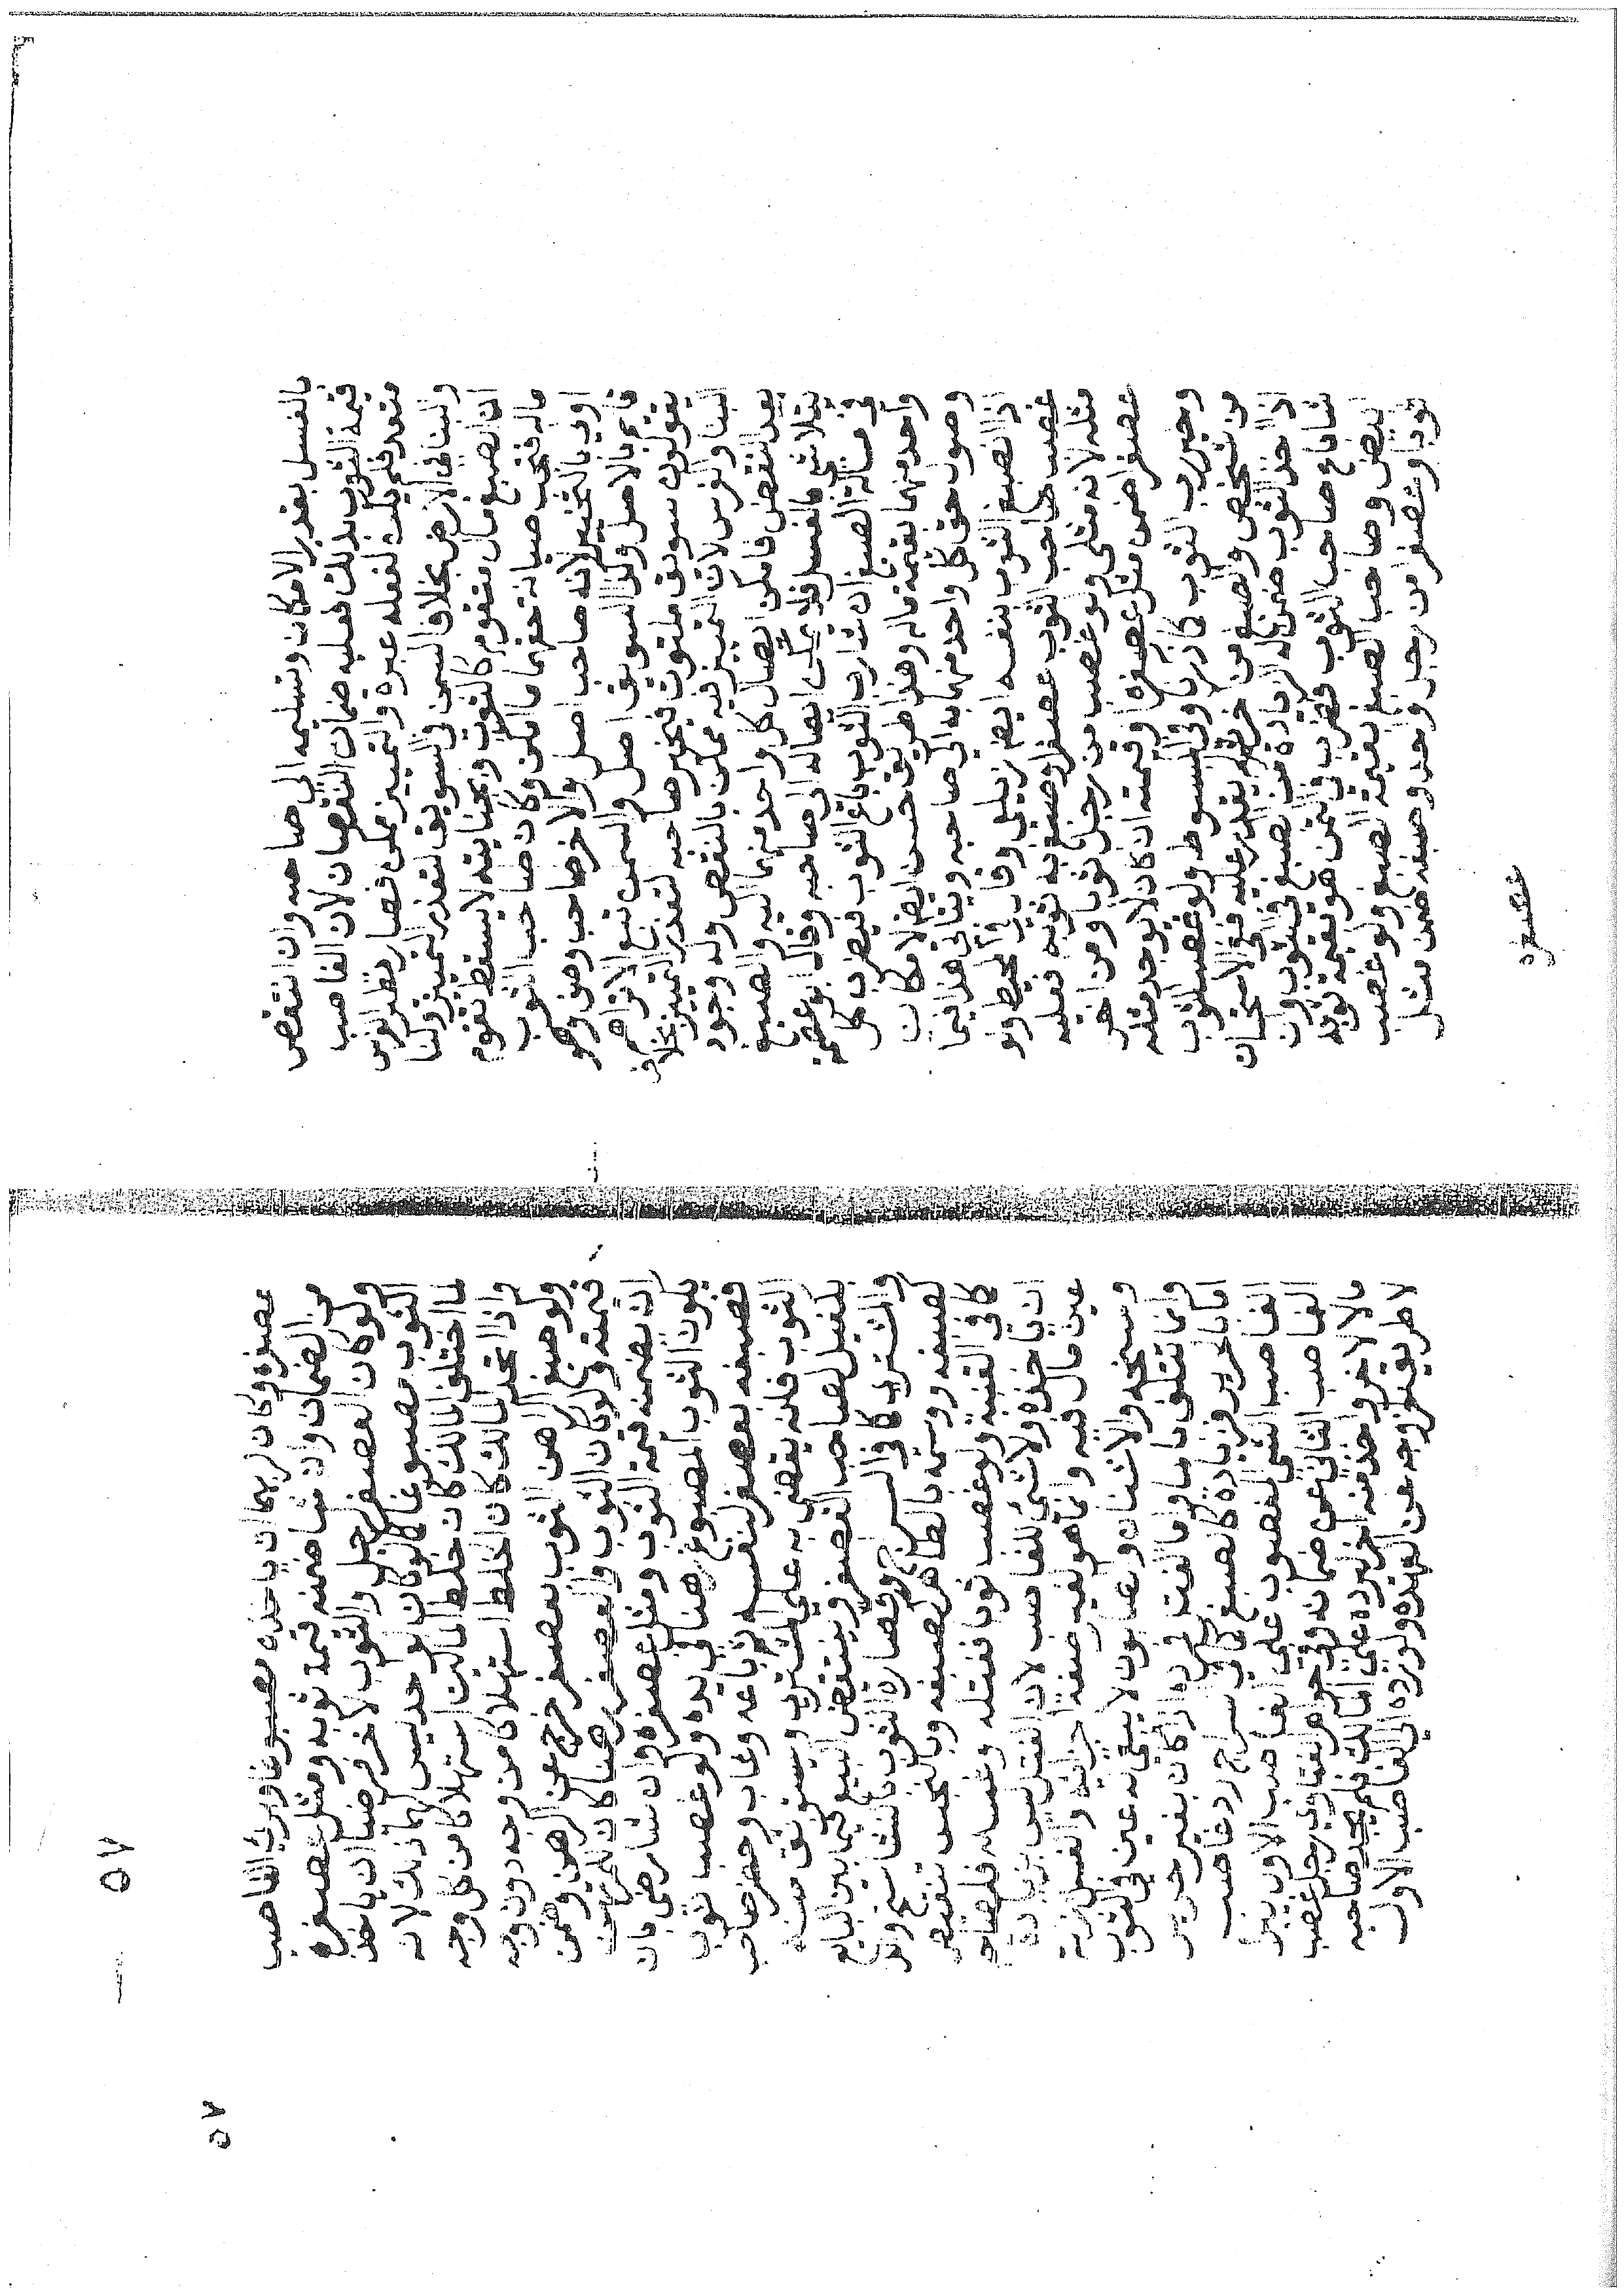 بالغسل بقدر الامكان وتسليمه الى صاحبه وان انتقص
قيمة الثوب بذلك فعليه ضمان النقصان لان الغاصب
متعد فلم يكن لفعله عبرة والتمييز ممكن فصار نظير الغرس
والبنا في الارض بخلاف السمن في السويق لتعذر التمييز ولنا
ان الصبغ مال متقوم كالثوب وبجنايته لا يسقط تقوم
ماله فتجب صيانة حقهما ما امكن وكان صاحب الثوب
اولى بالتخيير لانه صاحب اصل والاخر صاحب وصف وهو
قايم بالاصل وكذا السويق اصل والسمن تبع الا تراهم
يقولون سويق ملتوت فيخير صاحبه لتعذر التمييز بخلاف
البنا والغرس لان التمييز فيه ممكن بالنقض وله وجود
بعد النقض فامكن ايصال كل واحد منهما اليه والصبغ
يتلاشى بالغسل فلا يمكن ايصاله الى صاحبه وقال ابو عصمة
في مسالة الصبغ ان شا رب الثوب باع الثوب فيضرب كل
واحد منهما بقيمة ماله وهذا طريق حسن ايضا لامكان
وصول حق كل واحد منهما به الى صاحبه ويتاتى هذا فيما
اذا انصبغ الثوب بنفسه ايضا زيلعي وقال في المحيط ولو
غصب صاحب الثوب عصفرا وصبغ به ثوبه فعليه
مثله لانه مثلي ولو غصب من رجل ثوبا ومن اخر
عصفرا ضمن مثل عصفره او قيمته ان كان لا يوجد مثله
وخير رب الثوب كما مر وفي المبسوط ولو غصب الثوب
من شخص والصبغ من اخر ثم لم يقدر عليه ففي الاستحسان
اذا اخذ الثوب ضمن له الزيادة من الصبغ في الثوب وان
شا باع صاحب الثوب فضرب في الثمن هو بقيمة ثوبه
ابيض وصاحب الصبغ بقيمة الصبغ ولو غصب
ثوبا وعصفرا من رجل واحد وصبغه ضمن مثل
عصفره
٥٧
٥٧
عصفره وكان لربهما ان ياخذه مصبوغا ويبرئ الغاصب
من الضمان وان شا ضمنه قيمة ثوبه ومثل عصفره
ولو كان العصفر لرجل والثوب لاخر فرضيا ان ياخذا
الثوب مصبوغا كما لو كان لواحد ليس لهما ذلك لانه
لما اختلف المالك كان خلط المالين استهلاكا من كل وجه
واذا اتحد المالك كان الخلط استهلاكا من وجه دون وجه
ولو صبغ الراهن الثوب بعصفر خرج عن الرهن وضمن
قيمته ولو كان الثوب والعصفر رهنا كان للمرتهن
ان يضمنه قيمة الثوب ومثل عصفره وان شا رضي بان
يكون الثوب المصبوغ رهنا في يده ولو غصب ثوب
فصبغه بعصفر لنفسه ثم باعه وغاب وحضر صاحب
الثوب فانه يقضي به على المشتري ويستوثق منه
بكفيل لصاحب العصفر وينتقض البيع فيما بين البايع
والمشتري كما في وقصارة الثوب بالنشاستج ولو
لصبغه ووسمه بالطاهر كصبغه وبالنجس تنقيص
كما في القنية ولو غصب ثوبا ففتله وغسله فلصاحبه
ان ياخذه ولا شي للغاصب لان الفتل ليس بزيادة
عين مال فيه وانما هو تغيير صفة اجزايه والغسل ازالة
وسخه والاشنان والصابون لا يبقى له عين في الثوب
وانما تتلف بالما واما الفتل فيرده ان كان بغير حرير
اما بالحرير فزيادة كالصبغ كما في سراج رد غاصب
الغاصب الشي المغصوب على الغاصب الاول يبرا
الغاصب الثاني عن ضمانه وفي جواهر الفتاوى رجل غصب
مالا لاخر واخذ منه اخر ليرده على المالك فلم يجد صاحبه
لا طريق لخروجه عن العهدة ولو رده الى الغاصب الاول